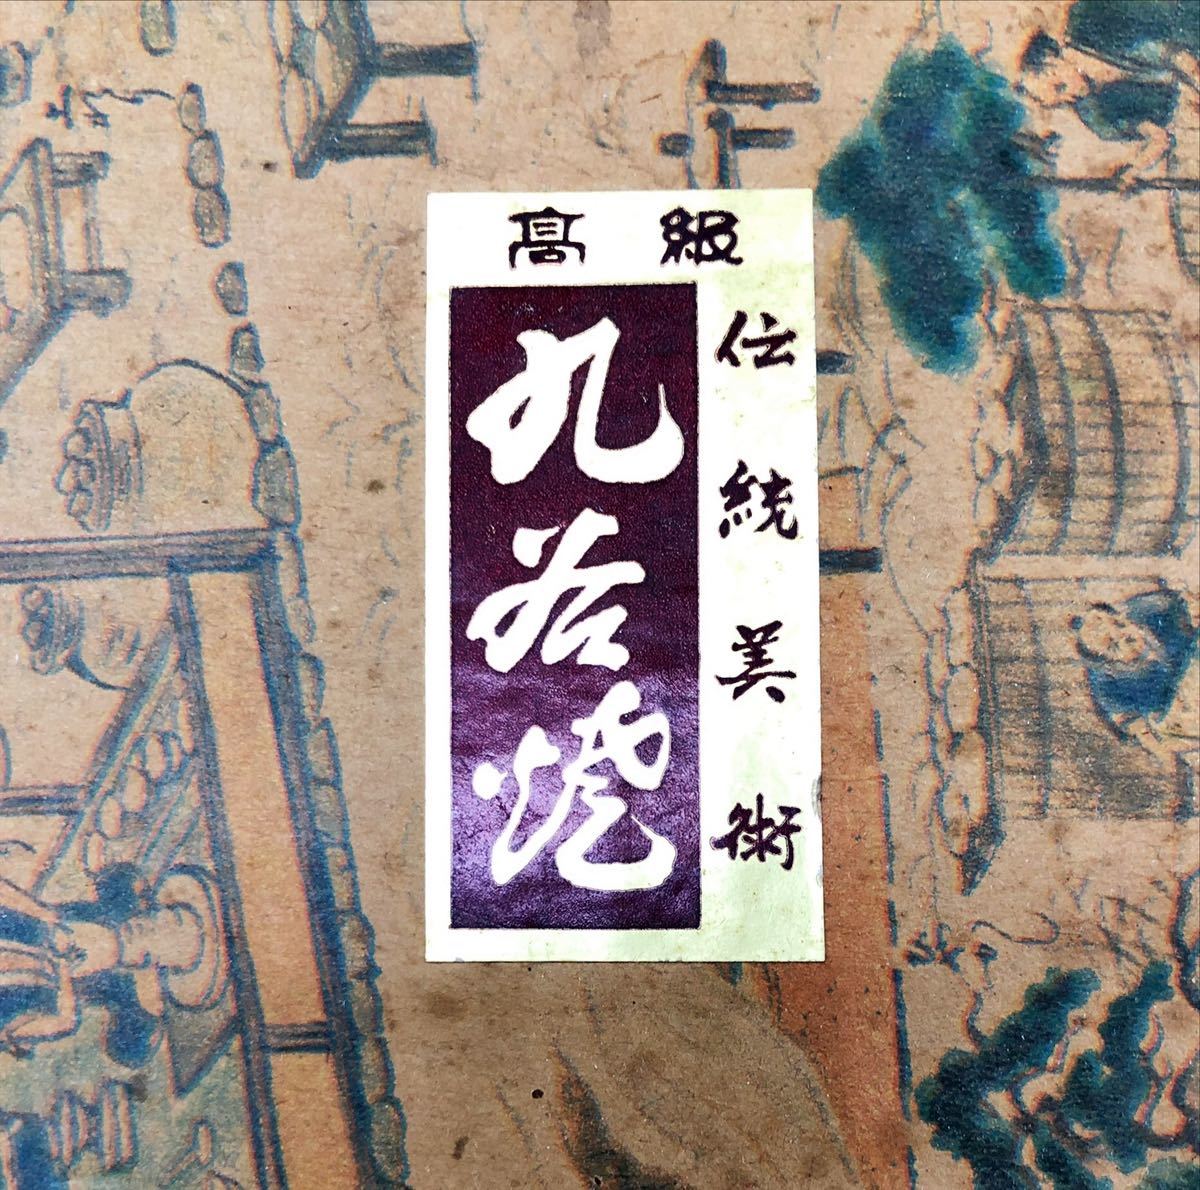 高級
伝統美術
九谷焼